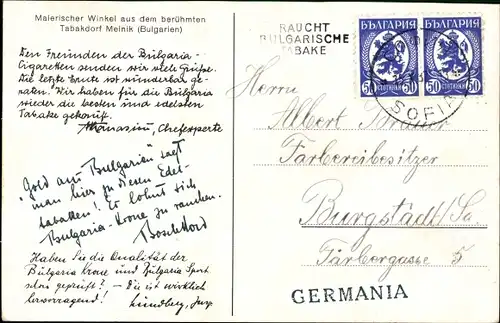 Malerischer Winkel aus dem berühmten
Tabakdorf Melnik (Bulgarien)
Den Freunden der Bulgaria-
Cigaretten senden wir viele Grüsse.
Die letzte Ernte ist wunderbar ge-
raten. Wir haben für die Bulgaria
wieder die besten und edelsten
Tabake gekauft.
Athanasiu, Chefexperte
"Gold aus Bulgarien" sagt
man hier zu diesen Edel-
tabaken! Es lohnt sich
Bulgaria-Krone zu rauchen.
Haben Sie die Qualität der
Bulgaria Krone und Bulgaria Sport
schon geprüft? - Die ist wirklich
hervorragend!
Lundberg,
RAUCHT
BULGARISCHE
TABAKE
БЪЛГАРИЯ
50 СТОТИНКИ 50
БЪЛГАРИЯ
50 СТОТИНКИ 50
SOFIA
Herrn
Albert
Färbereibesitzer
Burgstädt/Sa.
Färbergasse 5
GERMANIA